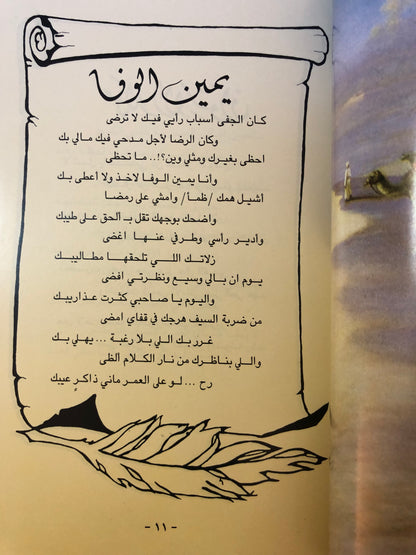 يمين الوفا
كان الجفى أسباب رأيي فيك لا ترضى
وكان الرضا لأجل مدحي فيك مالي بك
احظى بغيرك ومثلي وين؟!.. ما تحظى
وأنا يمين الوفا لاخذ ولا أعطى بك
أشيل همك /ظمأ/ وامشي على رمضا
واضحك بوجهك تقل بـ ألحق على طيبك
وأدير راسي وطرفي عنها اغضى
زلاتك اللي تلحقها مطاليبك
يوم ان بالي وسيع ونظرتي افضى
واليوم يا صاحبي كثرت عذاريبك
من ضربة السيف هرجك في قفاي امضى
غرر بك اللي بلا رغبة ... يهلي بك
واللي بناظرك من نار الكلام ألظى
رح ... لو على العمر ماني ذاكرٍ عيبك
- ١١ -